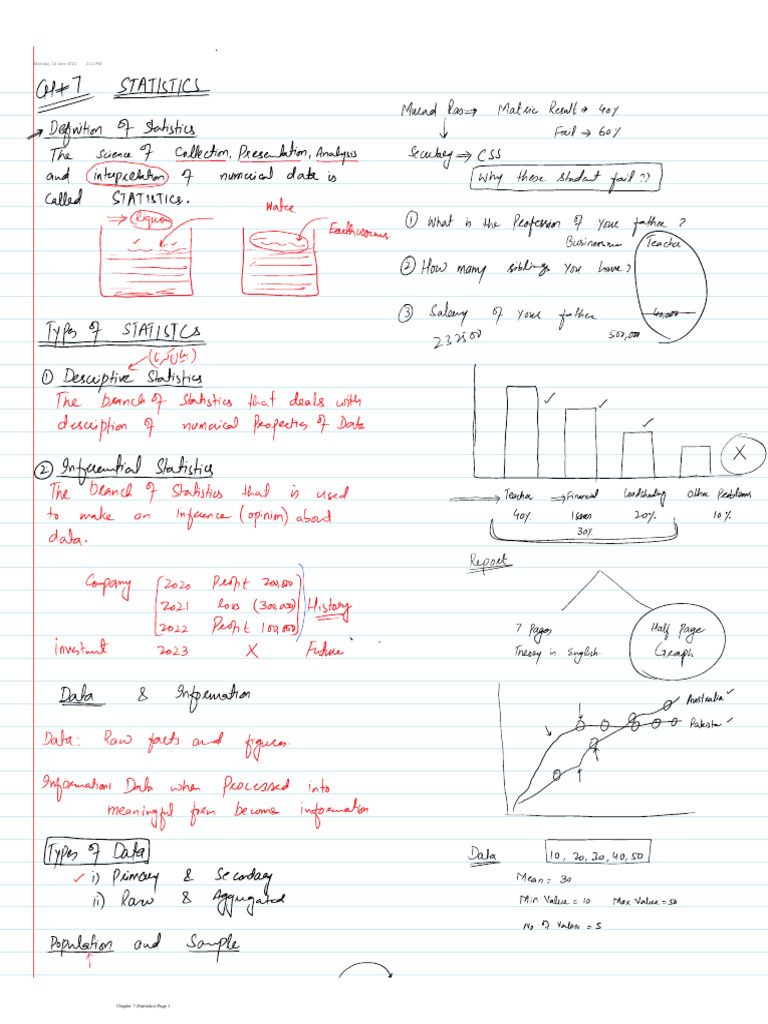 Monday, 14 June 2021 2:11 PM
CH# 7 STATISTICS
Definition of Statistics
The science of Collection, Presentation, Analysis
and interpretation of numerical data is
called STATISTICS.
Water
Earthworms
Types of STATISTCS
① Descriptive Statistics
The branch of Statistics that deals with
description of numerical Properties of Data
② Inferential Statistics
The Branch of Statistics that is used
to make an inference (opinion) about
data.
Company 2020 Profit 200,000
2021 loss (300,000) History
2022 Profit 100,000
investment 2023 X Future
Data & Information
Data: Raw facts and figures.
Information: Data when Processed into
meaningful form become information
Types of Data
✓ i) Primary & Secondary
ii) Raw & Aggregated
Population and Sample
Murad Ras → Matric Result → 40%
Fail → 60%
Secretary → CSS
Why these student fail??
① What is the Profession of your father ?
Businessman Teacher
② How many siblings you have?
③ Salary of your father 40,000
232500 500,000
X
Teacher → Financial Loadshading Other Problems
40% Issues 20% 10%
30%
Report
7 Pages Half Page
Theory in English. Graph
Australia ✓
Pakistan ✓
Data 10, 20, 30, 40, 50
Mean = 30
Min Value = 10 Max Value = 50
No of Values = 5
Chapter 7 (Statistics) Page 1